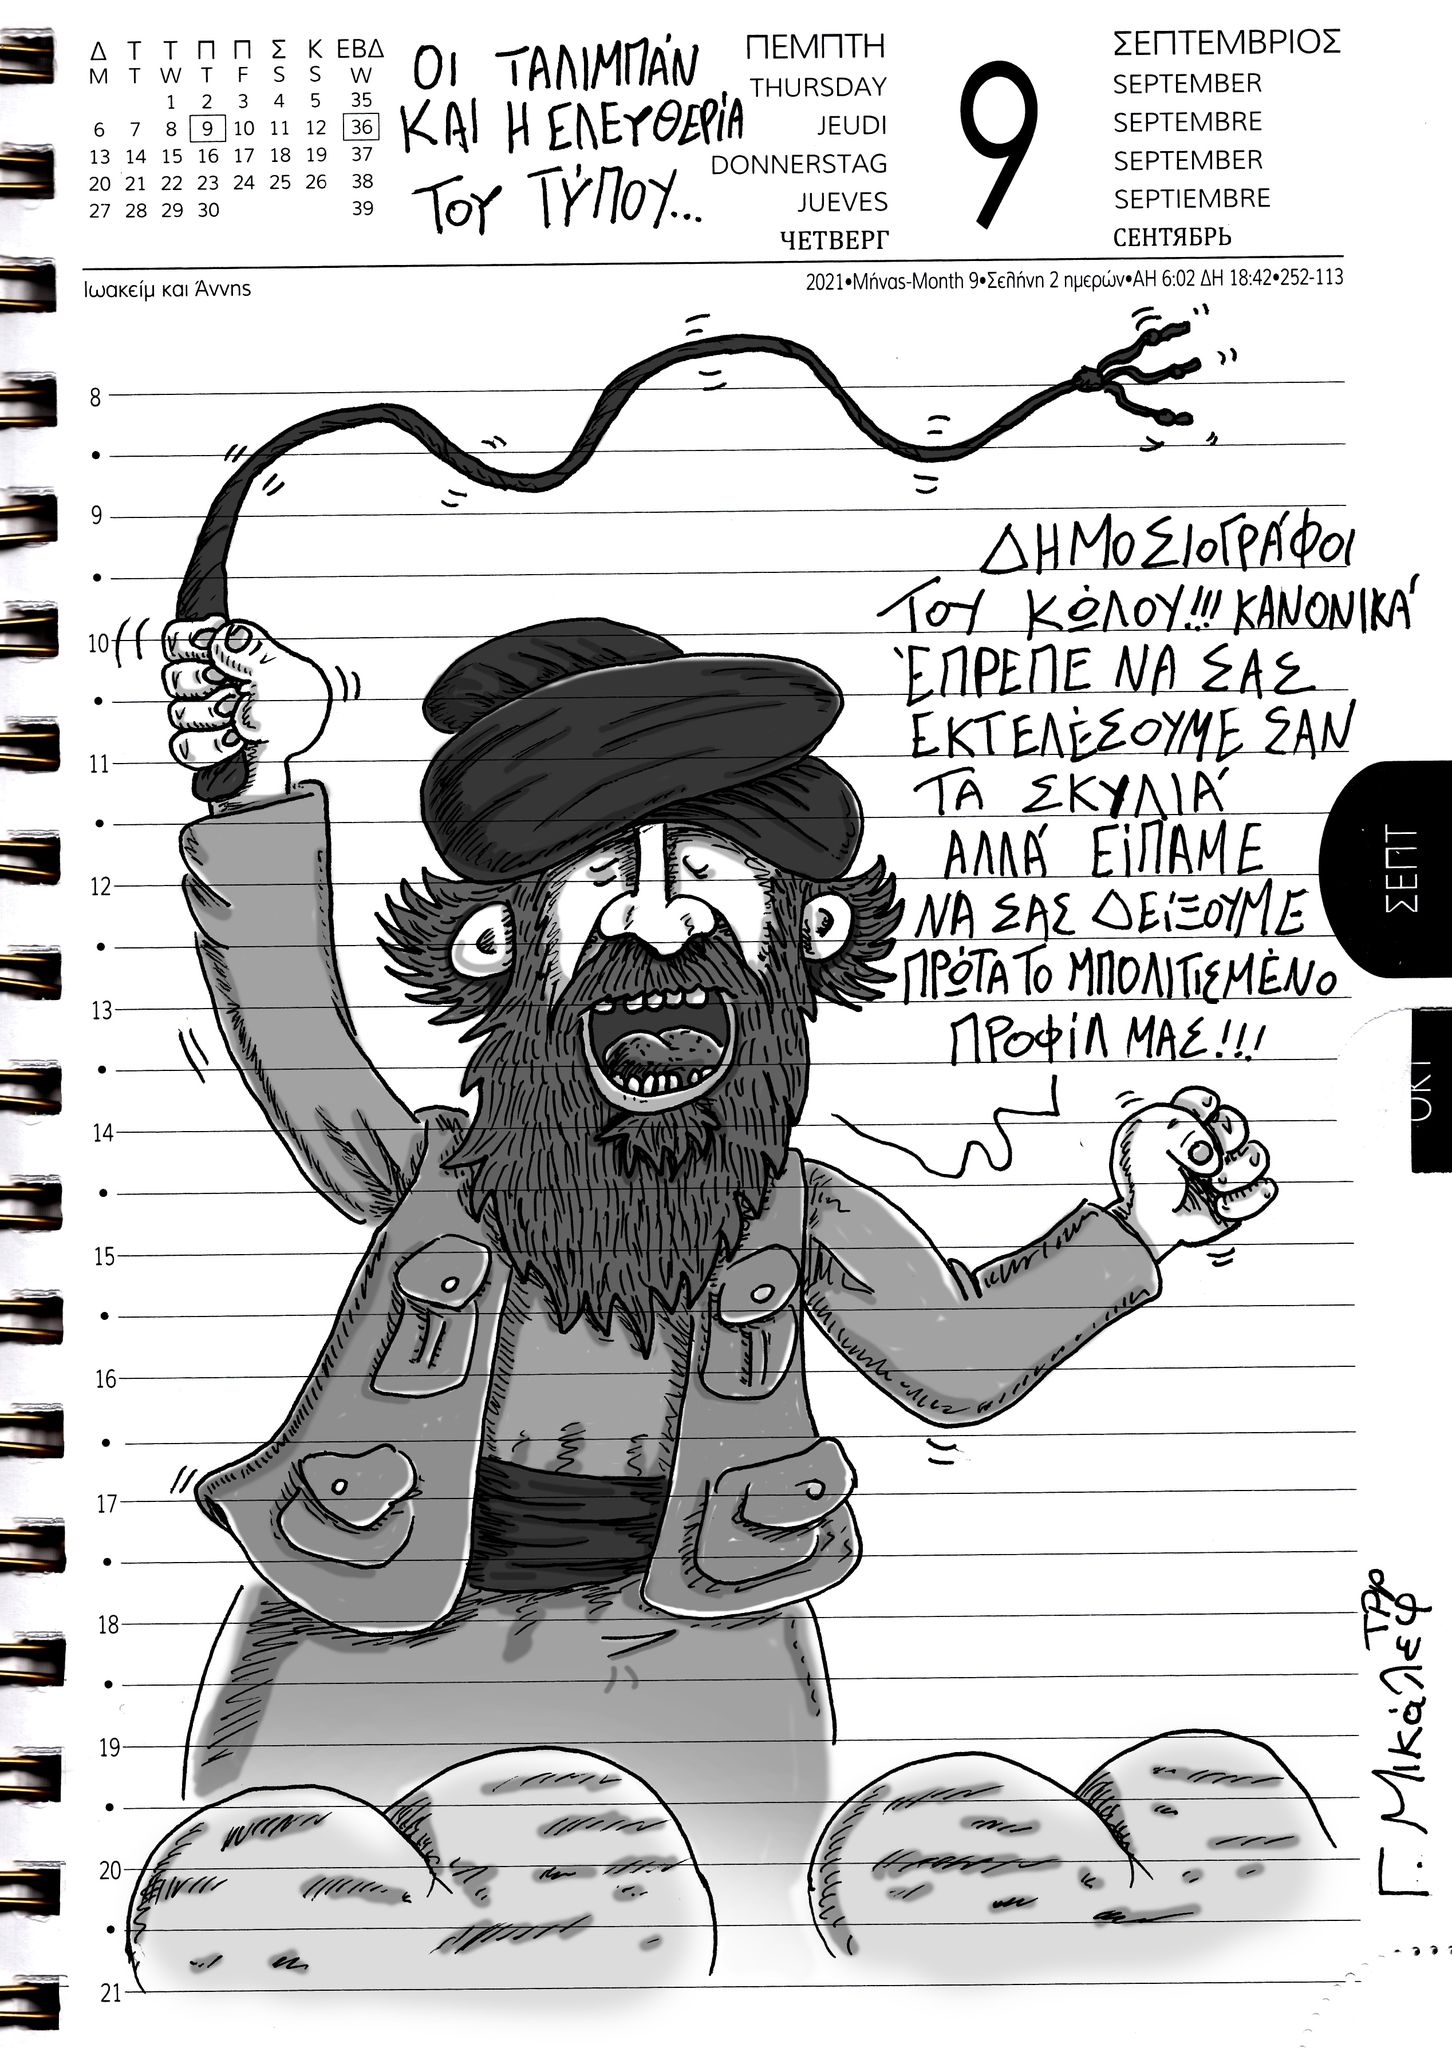 Δ Τ Τ Π Π Σ Κ ΕΒΔ
M T W T F S S W
1 2 3 4 5 35
6 7 8 9 10 11 12 36
13 14 15 16 17 18 19 37
20 21 22 23 24 25 26 38
27 28 29 30 39
ΟΙ ΤΑΛΙΜΠΆΝ
ΚΑΙ Η ΕΛΕΥΘΕΡΊΑ
ΤΟΥ ΤΎΠΟΥ...
ΠΕΜΠΤΗ
THURSDAY
JEUDI
DONNERSTAG
JUEVES
ЧЕТВЕРГ
9
ΣΕΠΤΕΜΒΡΙΟΣ
SEPTEMBER
SEPTEMBRE
SEPTEMBER
SEPTIEMBRE
СЕНТЯБРЬ
Ιωακείμ και Άννης
2021•Μήνας-Month 9•Σελήνη 2 ημερών•ΑΗ 6:02 ΔΗ 18:42•252-113
8
9
10
11
12
13
14
15
16
17
18
19
20
21
ΔΗΜΟΣΙΟΓΡΆΦΟΙ
ΤΟΥ ΚΏΛΟΥ!!! ΚΑΝΟΝΙΚΆ
ΈΠΡΕΠΕ ΝΑ ΣΑΣ
ΕΚΤΕΛΈΣΟΥΜΕ ΣΑΝ
ΤΑ ΣΚΥΛΙΆ
ΑΛΛΆ ΕΊΠΑΜΕ
ΝΑ ΣΑΣ ΔΕΊΞΟΥΜΕ
ΠΡΏΤΑ ΤΟ ΜΠΟΛΙΤΙΣΜΈΝΟ
ΠΡΟΦΊΛ ΜΑΣ!!!
ΣΕΠΤ
ΟΚΤ
Γ. Μικάλεφ